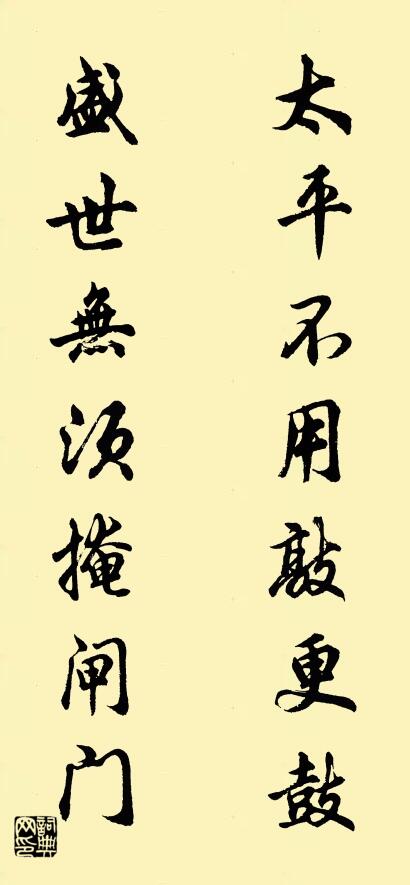 太平不用敲更鼓
盛世無須掩闸门
詞典网印